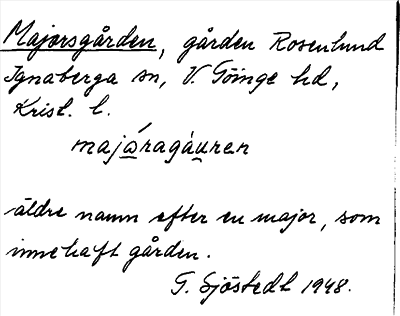 Majorsgården, gården Rosenlund
Ignaberga sn, V. Göinge hd,
Krist. l.
majáragáuren
äldre namn efter en major, som
innehaft gården.
G. Sjöstedt 1948.